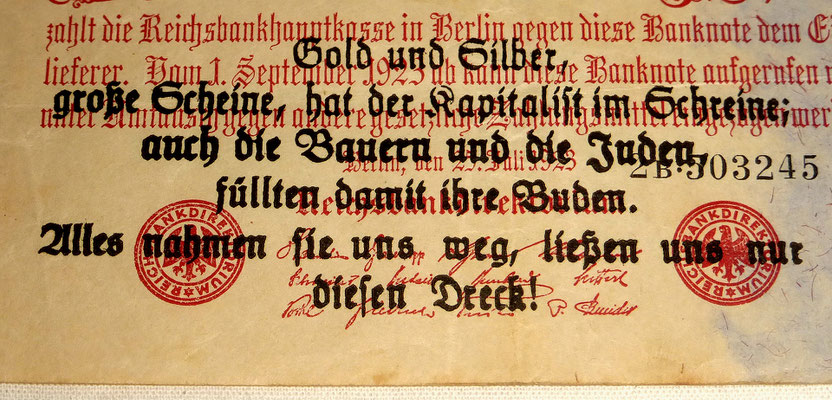 zahlt die Reichsbankhauptkasse in Berlin gegen diese Banknote dem E
Gold und Silber,
lieferer. Vom 1. September 1923 ab kann diese Banknote aufgerufen
große Scheine, hat der Kapitalist im Schreine;
unter Umtausch gegen andere gesetzliche Zahlungsmittel eingezogen wer
auch die Bauern und die Juden,
Berlin, den 25. Juli 1923
2B·303245
füllten damit ihre Buden.
Reichsbankdirektorium
Alles nahmen sie uns weg, ließen uns nur
diesen Dreck!
REICHSBANKDIREKTORIUM
REICHSBANKDIREKTORIUM